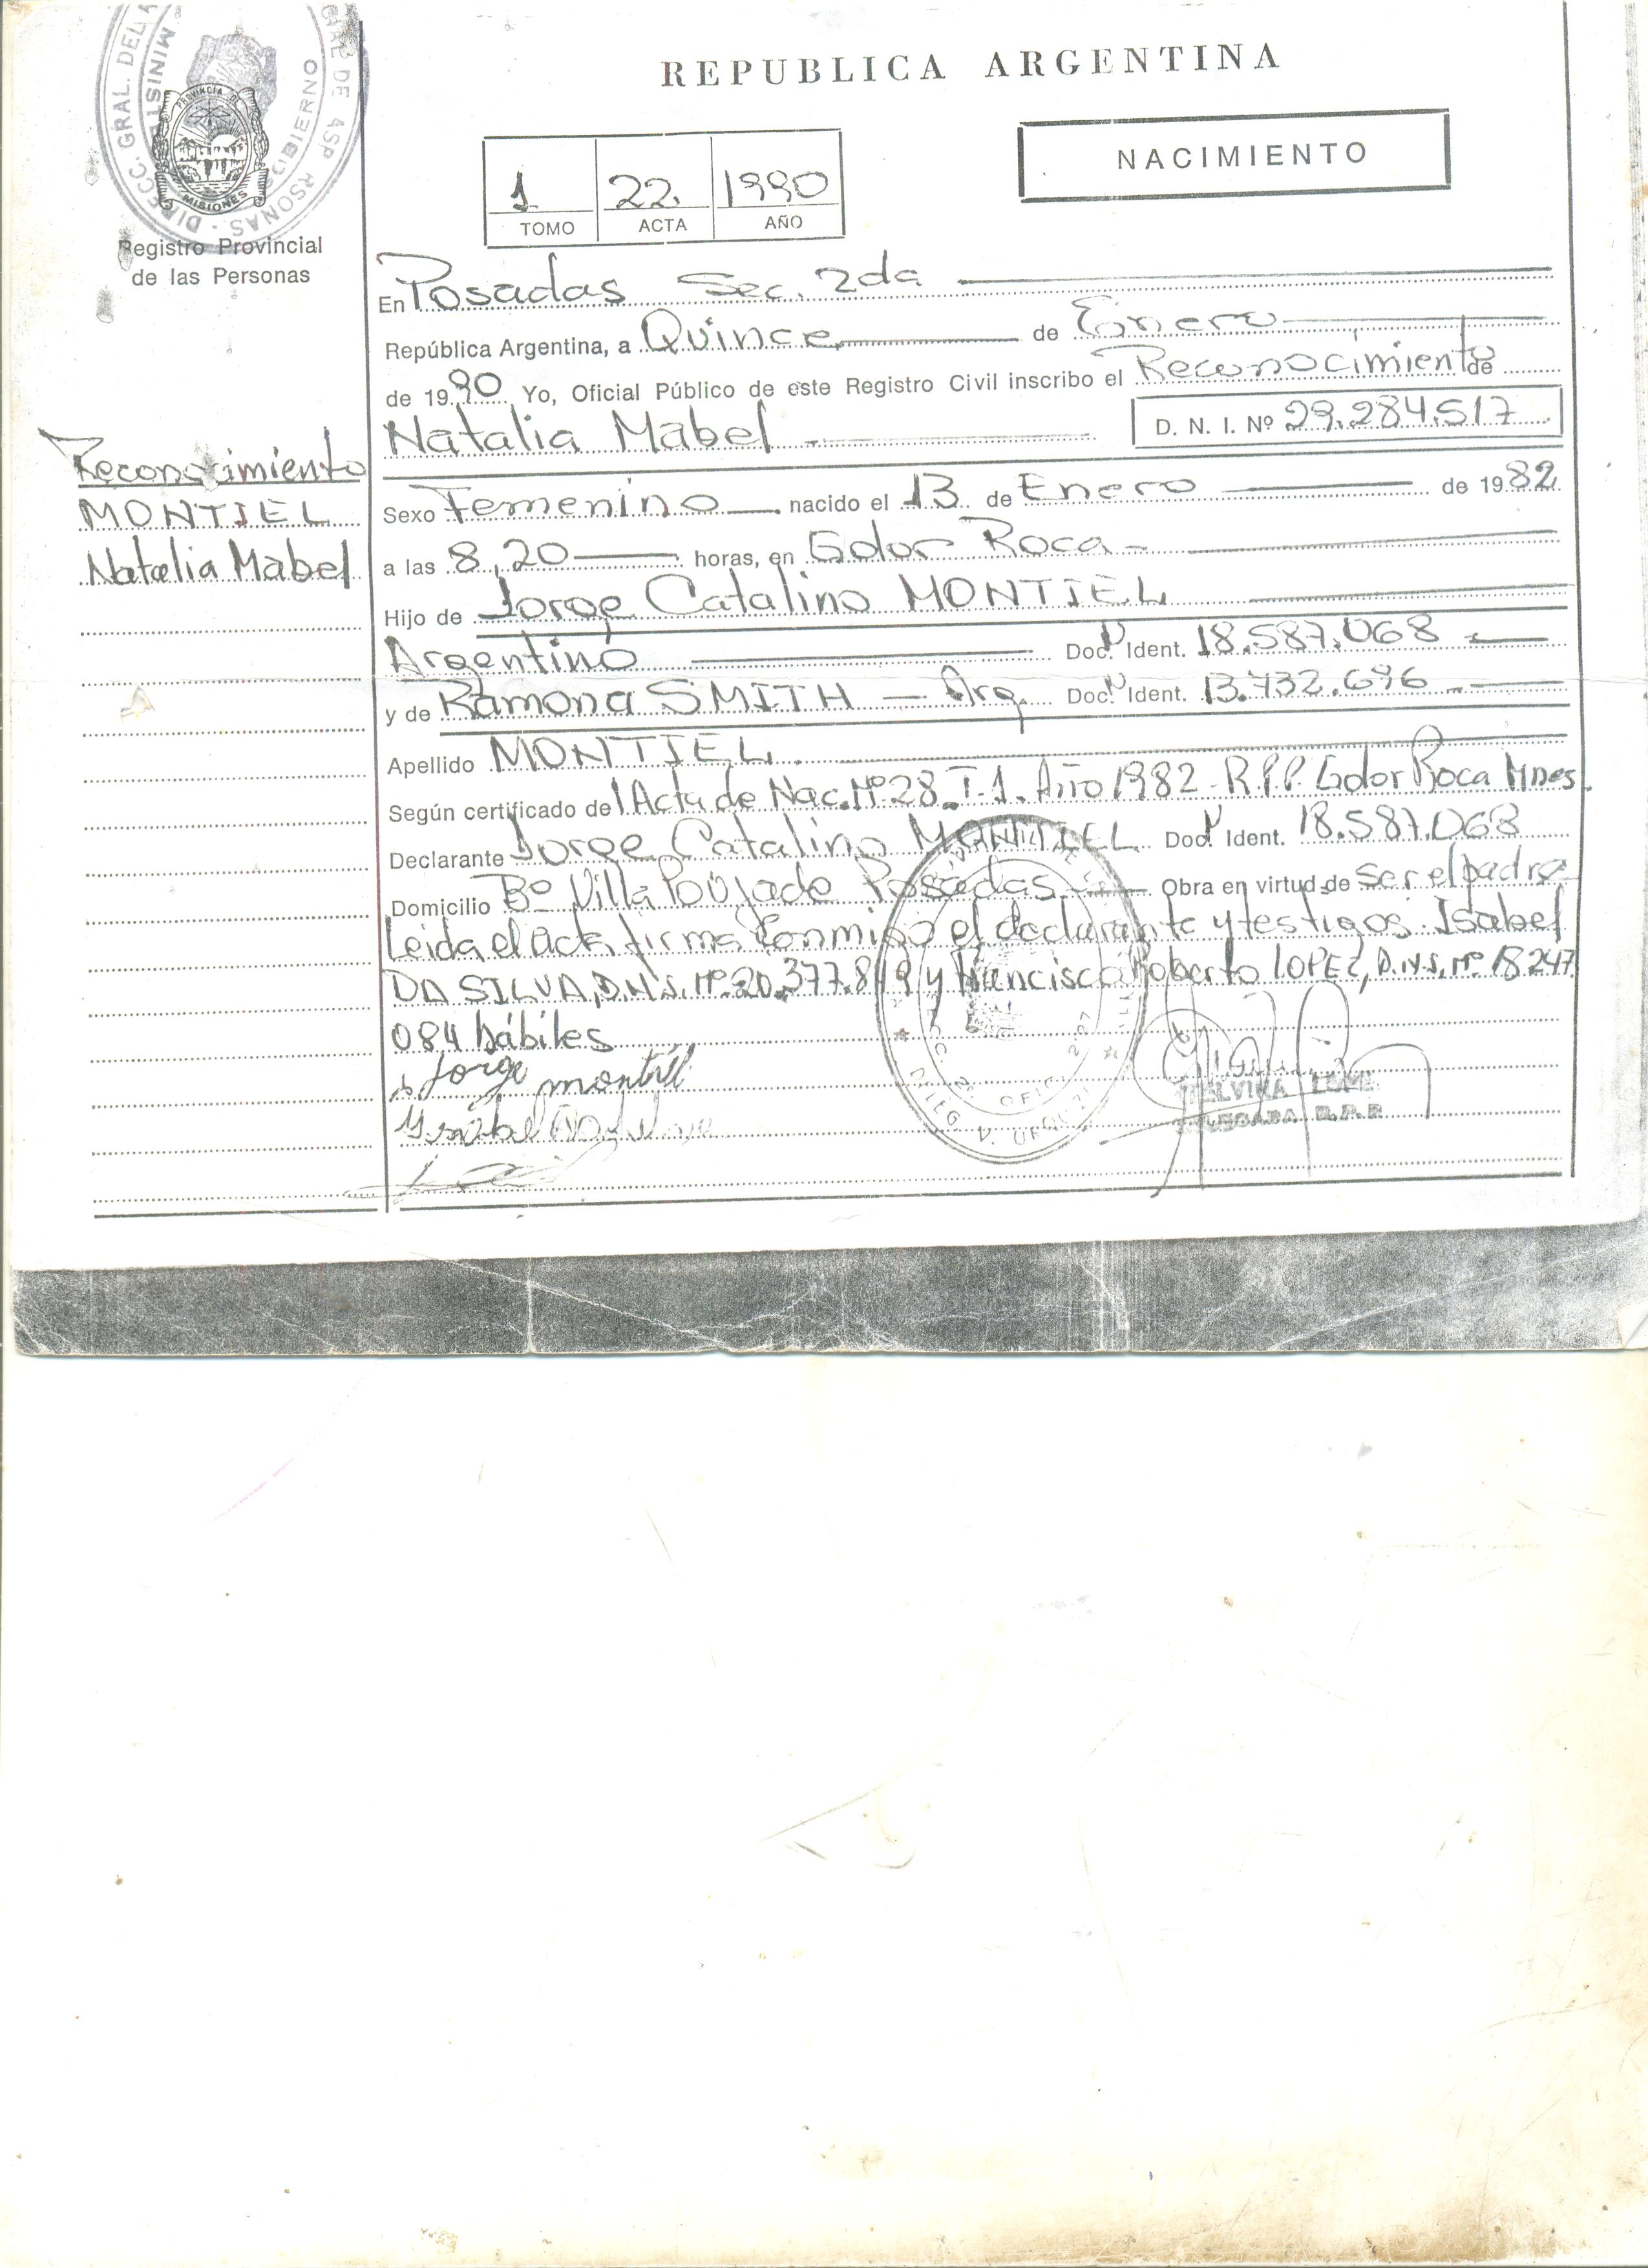 REPUBLICA ARGENTINA
NACIMIENTO
1 22. 1990
TOMO ACTA AÑO
DIRECC. GRAL. DEL
GOBIERNO
PROVINCIA DE
MISIONES
Registro Provincial
de las Personas
En Posadas Sec. 2da
República Argentina, a Quince de Enero
de 1990 Yo, Oficial Público de este Registro Civil inscribo el Reconocimiento de
Natalia Mabel D. N. I. Nº 29.284.517
Reconocimiento
MONTIEL
Natalia Mabel
Sexo Femenino nacido el 13 de Enero de 1982
a las 8,20 horas, en Gdor Roca
Hijo de Jorge Catalino MONTIEL
Argentino Doc. Ident. 18.587.068
y de Ramona SMITH - Arg. Doc. Ident. 13.732.696
Apellido MONTIEL
Según certificado de Acta de Nac. Nº 28. T.1. Año 1982 - R.P.P. Gdor Roca Mnes.
Declarante Jorge Catalino MONTIEL Doc. Ident. 18.587.068
Domicilio Bº Villa Poujade Posadas Obra en virtud de ser el padre
Leida el acta firma conmigo el declarante y testigos. Isabel
DA SILVA, D.N.I. Nº 20.377.849 y Francisco Roberto LOPEZ, D.N.I. Nº 18.247
084 hábiles
Jorge montiel